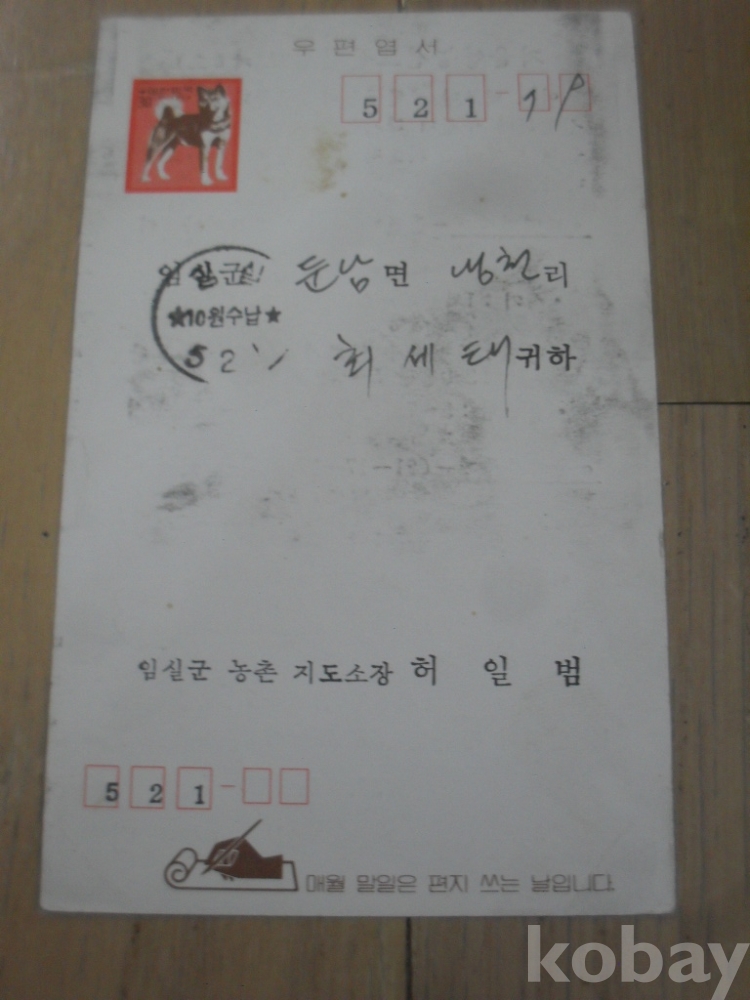 우편엽서
521-19
임실군 둔남면 냉천리
★10원수납★
521
최세태 귀하
임실군 농촌 지도소장 허 일 범
521-
매월 말일은 편지 쓰는 날입니다.
kobay